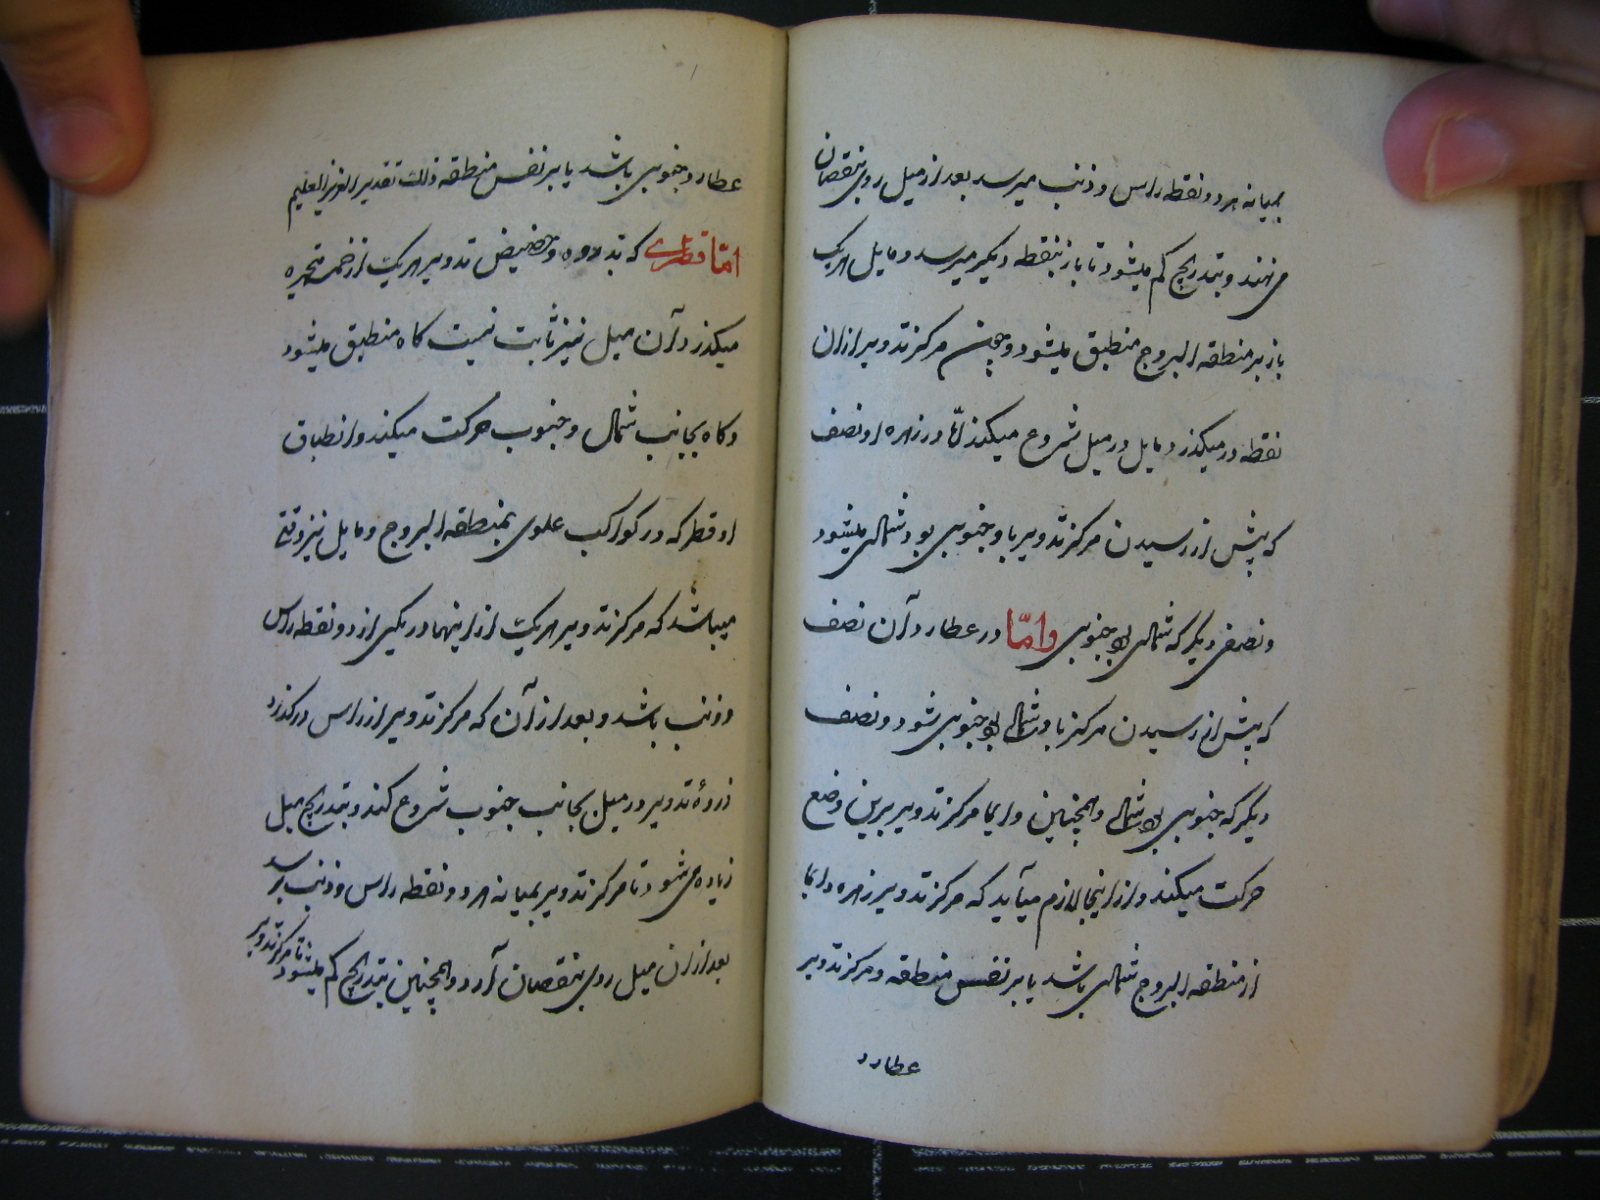 بمیانه هر دو نقطه راس و ذنب میرسد بعد از میل روی بنقصان
می نهند و بتدریج کم میشود تا باز بنقطه دیگر میرسد و مایل هریک
باز بر منطقه البروج منطبق میشود و چون مرکز تدویر از ان
نقطه در میکذرد مایل در میل شروع میکند امّا در زهره او نصف
که پیش از رسیدن مرکز تدویر باو جنوبی بود شمالی میشود
و نصفی دیگر که شمالی بود جنوبی وامّا در عطارد آن نصف
که پیش از رسیدن مرکز باو شمالی بود جنوبی شود و نصف
دیگر که جنوبی بود شمالی و همچنین دایما مرکز تدویر برین وضع
حرکت میکند و از اینجا لازم میآید که مرکز تدویر زهره دایما
از منطقه البروج شمالی باشد یا بر نفس منطقه و مرکز تدویر
عطارد
عطارد جنوبی باشد یا بر نفس منطقه ذلک تقدیر العزیز العلیم
امّا قطری که بذروه و حضیض تدویر هریک از خمسه متحیره
میکذرد آن میل نیز ثابت نیست کاه منطبق میشود
و کاه بجانب شمال و جنوب حرکت میکند و انطباق
او قطر که در کواکب علوی بمنطقه البروج و مایل نیز وقتی
میباشد که مرکز تدویر هریک از اینها در یکی از دو نقطه راس
و ذنب باشد و بعد از آن که مرکز تدویر از راس درکذرد
ذروهٔ تدویر در میل بجانب جنوب شروع کند و بتدریج میل
زیاده می شود تا مرکز تدویر بمیانه هر دو نقطه راس و ذنب برسد
بعد از ان میل روی بنقصان آرد و همچنین بتدریج کم میشود تا مرکز تدویر